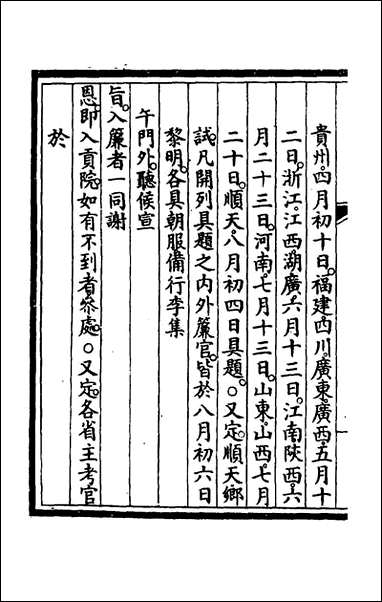 貴州。四月初十日。福建四川。廣東。廣西。五月十
二日。浙江。江西湖廣。六月十三日。江南陝西。六
月二十三日。河南。七月十三日。山東。山西。七月
二十日。順天。八月初四日具題。○又定。順天鄉
試。凡開列具題之內外簾官。皆於八月初六日
黎明。各具朝服。備行李集
午門外。聽候宣
旨。入簾者一同謝
恩。即入貢院。如有不到者叅處。○又定。各省主考官
於